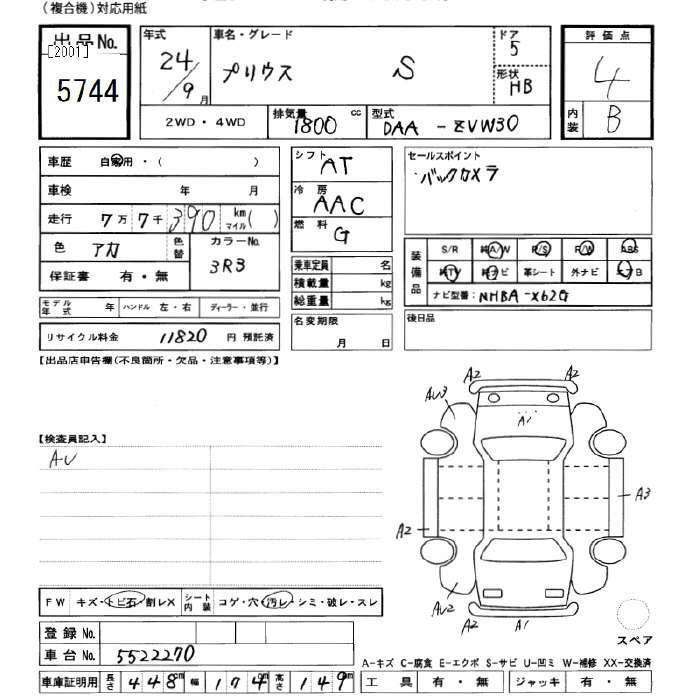 (複合機)対応用紙
出品No. [2001] 5744
年式 24/9月
車名・グレード プリウス S
ドア 5
形状 HB
評価点 4
内装 B
2WD・4WD
排気量 1800 cc
型式 DAA-ZVW30
車歴 自家用・( )
車検 年 月
走行 7万7千390 km マイル( )
色 アカ 色替
カラーNo. 3R3
保証書 有・無
シフト AT
冷房 AAC
燃料 G
乗車定員 名
積載量 kg
総重量 kg
セールスポイント
バックカメラ
装備品 S/R 純A/W P/S P/W ABS
純TV 純ナビ 革シート 外ナビ エアB
ナビ型番: NHBA-X62G
モデル年式 年 ハンドル 左・右 ディーラー・並行
名変期限 月 日
後日品
リサイクル料金 11820 円 預託済
【出品店申告欄(不良箇所・欠品・注意事項等)】
A2 A2
AU3 A1
【検査員記入】
AU
A2 A3
AU2 A2 A1
スペア
FW キズ・トビ石・割レX シート内装 コゲ・穴・汚レ・シミ・破レ・スレ
登録No.
車台No. 5522270
A-キズ C-腐食 E-エクボ S-サビ U-凹ミ W-補修 XX-交換済
車庫証明用 長さ 448cm 幅 174cm 高さ 149cm
工具 有・無 ジャッキ 有・無